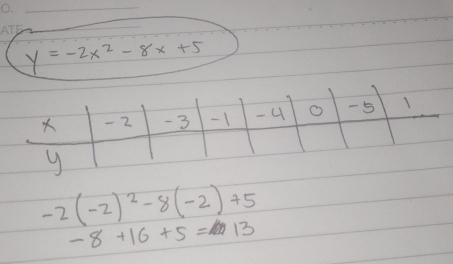 O.
ATE
y = -2x² - 8x + 5
x | -2 | -3 | -1 | -4 | 0 | -5 | 1
y
-2(-2)² - 8(-2) + 5
-8 + 16 + 5 = 13